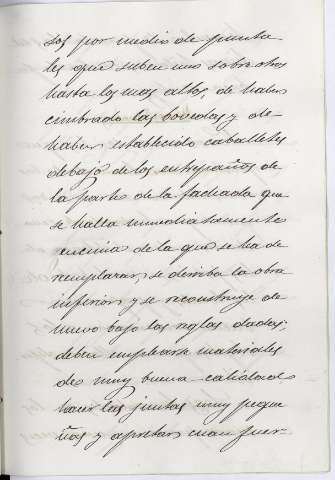 sos por medio de punta
les que suben uno sobre otros
hasta los mas altos, de haber
cimbrado las bovedas y de
haber establecido caballetes
debajo de los entrepaños de
la parte de la fachada que
se halla inmediatamente
encima de la que se ha de
remplazar, se derriba la obra
inferior y se reconstruye de
nuevo bajo las reglas dadas;
deben emplearse materiales
de muy buena calidad
hacer las juntas muy peque
ñas y apretar cuan fuer-